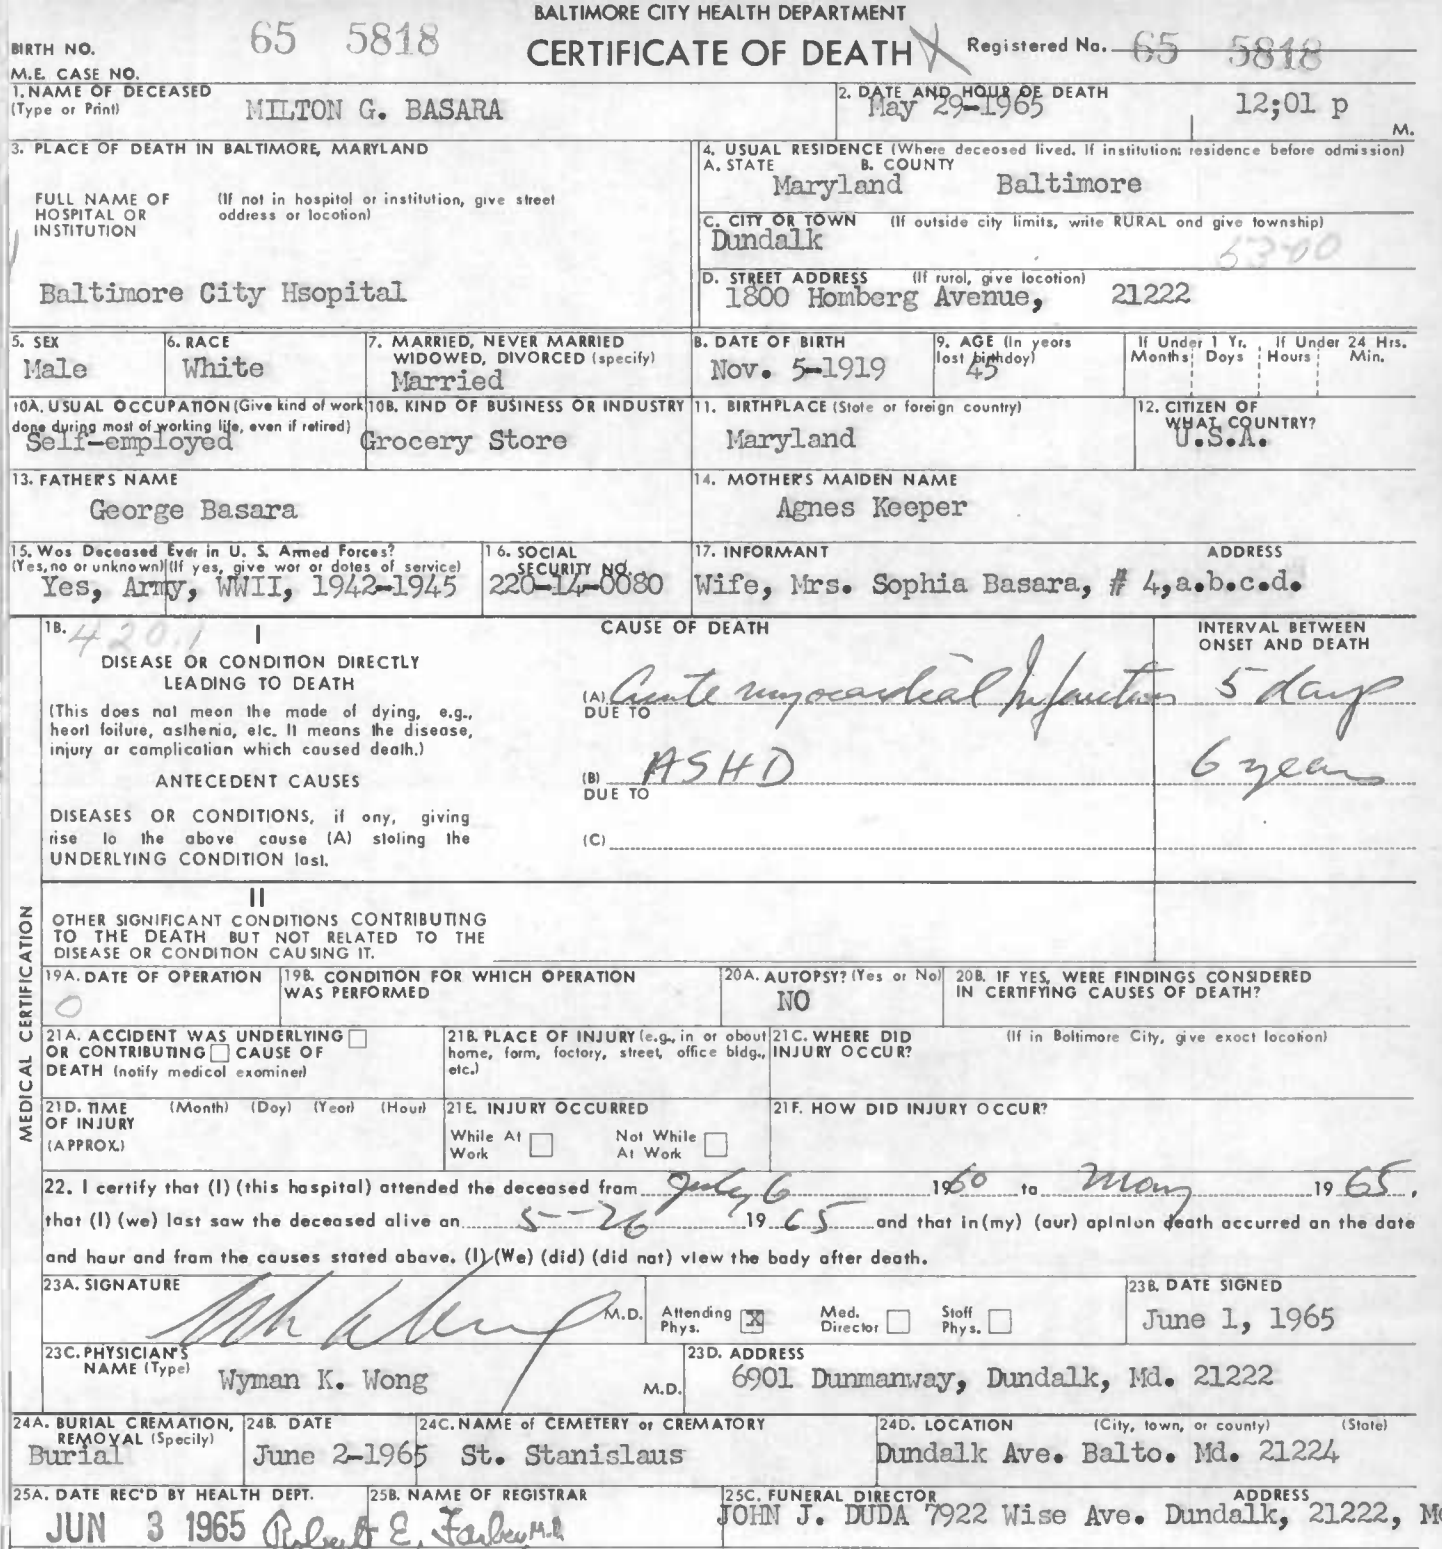 BALTIMORE CITY HEALTH DEPARTMENT
BIRTH NO. 65 5818 CERTIFICATE OF DEATH Registered No. 65 5818
M.E. CASE NO.
1. NAME OF DECEASED (Type or Print) MILTON G. BASARA
2. DATE AND HOUR OF DEATH May 29-1965 12;01 p M.
3. PLACE OF DEATH IN BALTIMORE, MARYLAND
FULL NAME OF HOSPITAL OR INSTITUTION (If not in hospital or institution, give street address or location)
Baltimore City Hsopital
4. USUAL RESIDENCE (Where deceased lived. If institution: residence before admission)
A. STATE B. COUNTY
Maryland Baltimore
C. CITY OR TOWN (If outside city limits, write RURAL and give township)
Dundalk 5300
D. STREET ADDRESS (If rural, give location)
1800 Homberg Avenue, 21222
5. SEX Male
6. RACE White
7. MARRIED, NEVER MARRIED WIDOWED, DIVORCED (specify) Married
8. DATE OF BIRTH Nov. 5-1919
9. AGE (In years last birthday) 45
If Under 1 Yr. Months Days If Under 24 Hrs. Hours Min.
10A. USUAL OCCUPATION (Give kind of work done during most of working life, even if retired) Self-employed
10B. KIND OF BUSINESS OR INDUSTRY Grocery Store
11. BIRTHPLACE (State or foreign country) Maryland
12. CITIZEN OF WHAT COUNTRY? U.S.A.
13. FATHER'S NAME George Basara
14. MOTHER'S MAIDEN NAME Agnes Keeper
15. Was Deceased Ever in U. S. Armed Forces?
(Yes, no or unknown) (If yes, give war or dates of service)
Yes, Army, WWII, 1942-1945
16. SOCIAL SECURITY NO. 220-14-0080
17. INFORMANT ADDRESS
Wife, Mrs. Sophia Basara, # 4,a.b.c.d.
MEDICAL CERTIFICATION
18. 420.1 I CAUSE OF DEATH INTERVAL BETWEEN ONSET AND DEATH
DISEASE OR CONDITION DIRECTLY LEADING TO DEATH
(This does not mean the mode of dying, e.g., heart failure, asthenia, etc. It means the disease, injury or complication which caused death.)
(A) Acute myocardial Infarction 5 days
DUE TO
ANTECEDENT CAUSES
(B) ASHD 6 years
DUE TO
DISEASES OR CONDITIONS, if any, giving rise to the above cause (A) stating the UNDERLYING CONDITION last.
(C)
II
OTHER SIGNIFICANT CONDITIONS CONTRIBUTING TO THE DEATH BUT NOT RELATED TO THE DISEASE OR CONDITION CAUSING IT.
19A. DATE OF OPERATION 0
19B. CONDITION FOR WHICH OPERATION WAS PERFORMED
20A. AUTOPSY? (Yes or No) NO
20B. IF YES, WERE FINDINGS CONSIDERED IN CERTIFYING CAUSES OF DEATH?
21A. ACCIDENT WAS UNDERLYING OR CONTRIBUTING CAUSE OF DEATH (notify medical examiner)
21B. PLACE OF INJURY (e.g., in or about home, farm, factory, street, office bldg., etc.)
21C. WHERE DID INJURY OCCUR? (If in Baltimore City, give exact location)
21D. TIME OF INJURY (APPROX.) (Month) (Day) (Year) (Hour)
21E. INJURY OCCURRED
While At Work Not While At Work
21F. HOW DID INJURY OCCUR?
22. I certify that (I) (this hospital) attended the deceased from July 6 1960 to May 1965,
that (I) (we) last saw the deceased alive on 5--26 1965 and that in (my) (our) opinion death occurred on the date
and hour and from the causes stated above. (I) (We) (did) (did not) view the body after death.
23A. SIGNATURE M.D. Attending Phys. X Med. Director Staff Phys.
23B. DATE SIGNED June 1, 1965
23C. PHYSICIAN'S NAME (Type) Wyman K. Wong M.D.
23D. ADDRESS 6901 Dunmanway, Dundalk, Md. 21222
24A. BURIAL CREMATION, REMOVAL (Specify) Burial
24B. DATE June 2-1965
24C. NAME of CEMETERY or CREMATORY St. Stanislaus
24D. LOCATION (City, town, or county) (State)
Dundalk Ave. Balto. Md. 21224
25A. DATE REC'D BY HEALTH DEPT. JUN 3 1965
25B. NAME OF REGISTRAR Robert E. Farber M.D.
25C. FUNERAL DIRECTOR ADDRESS
JOHN J. DUDA 7922 Wise Ave. Dundalk, 21222, Md